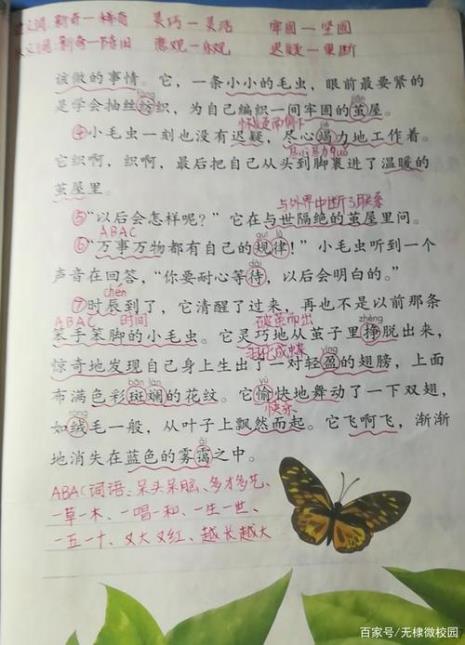 近义词:新奇一稀奇 灵巧一灵活 牢固一坚固
反义词:新奇一陈旧 悲观一乐观 迟疑一果断
该做的事情。它,一条小小的毛虫,眼前最要紧的
是学会抽丝纺织,为自己编织一间牢固的茧屋。
怀疑
④小毛虫一刻也没有迟疑,尽心竭力地工作着。
它织啊,织啊,最后把自己从头到脚裹进了温暖的
茧屋里。
与外界中断了联系
⑤“以后会怎样呢?”它在与世隔绝的茧屋里问。
ABAC
⑥“万事万物都有自己的规律!”小毛虫听到一个
声音在回答,“你要耐心等待,以后会明白的。”
chén
⑦时辰到了,它清醒了过来,再也不是以前那条
ABAC 时间 破茧而出 zhēng
笨手笨脚的小毛虫。它灵巧地从茧子里挣脱出来,
羽化成蝶
惊奇地发现自己身上生出了一对轻盈的翅膀,上面
bān lán
布满色彩斑斓的花纹。它愉快地舞动了一下双翅,
róng 快乐
如绒毛一般,从叶子上飘然而起。它飞啊飞,渐渐
地消失在蓝色的雾霭之中。
ABAC词语、呆头呆脑、多才多艺、
一草一木、一唱一和、一生一世、
一五一十、又大又红、越长越大
百家号/无棣微校园